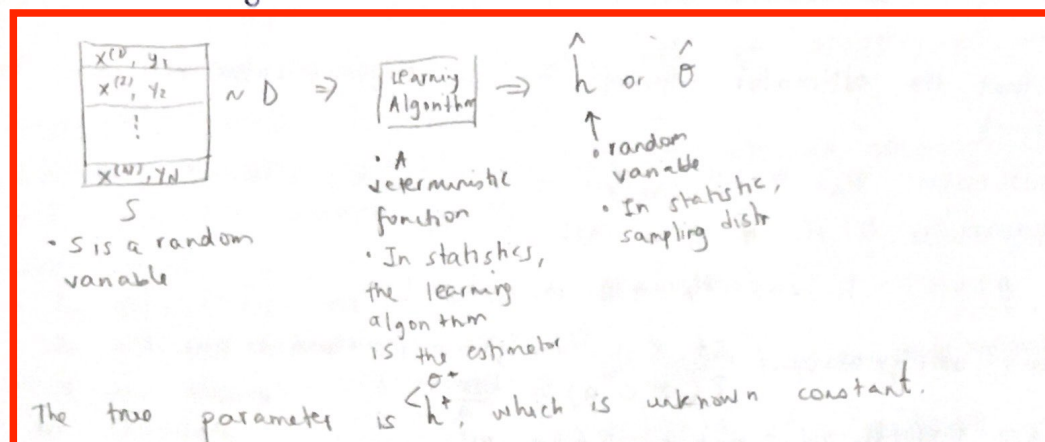 x⁽¹⁾, y₁
x⁽²⁾, y₂
⋮
x⁽ᴺ⁾, y_N
~ D ⇒
S
• S is a random
variable
Learning
Algorithm
⇒
• A
deterministic
function
• In statistics,
the learning
algorithm
is the estimator
ĥ or θ̂
↑
• random
variable
• In statistic,
sampling distr
The true parameter is < θ* h*, which is unknown constant.